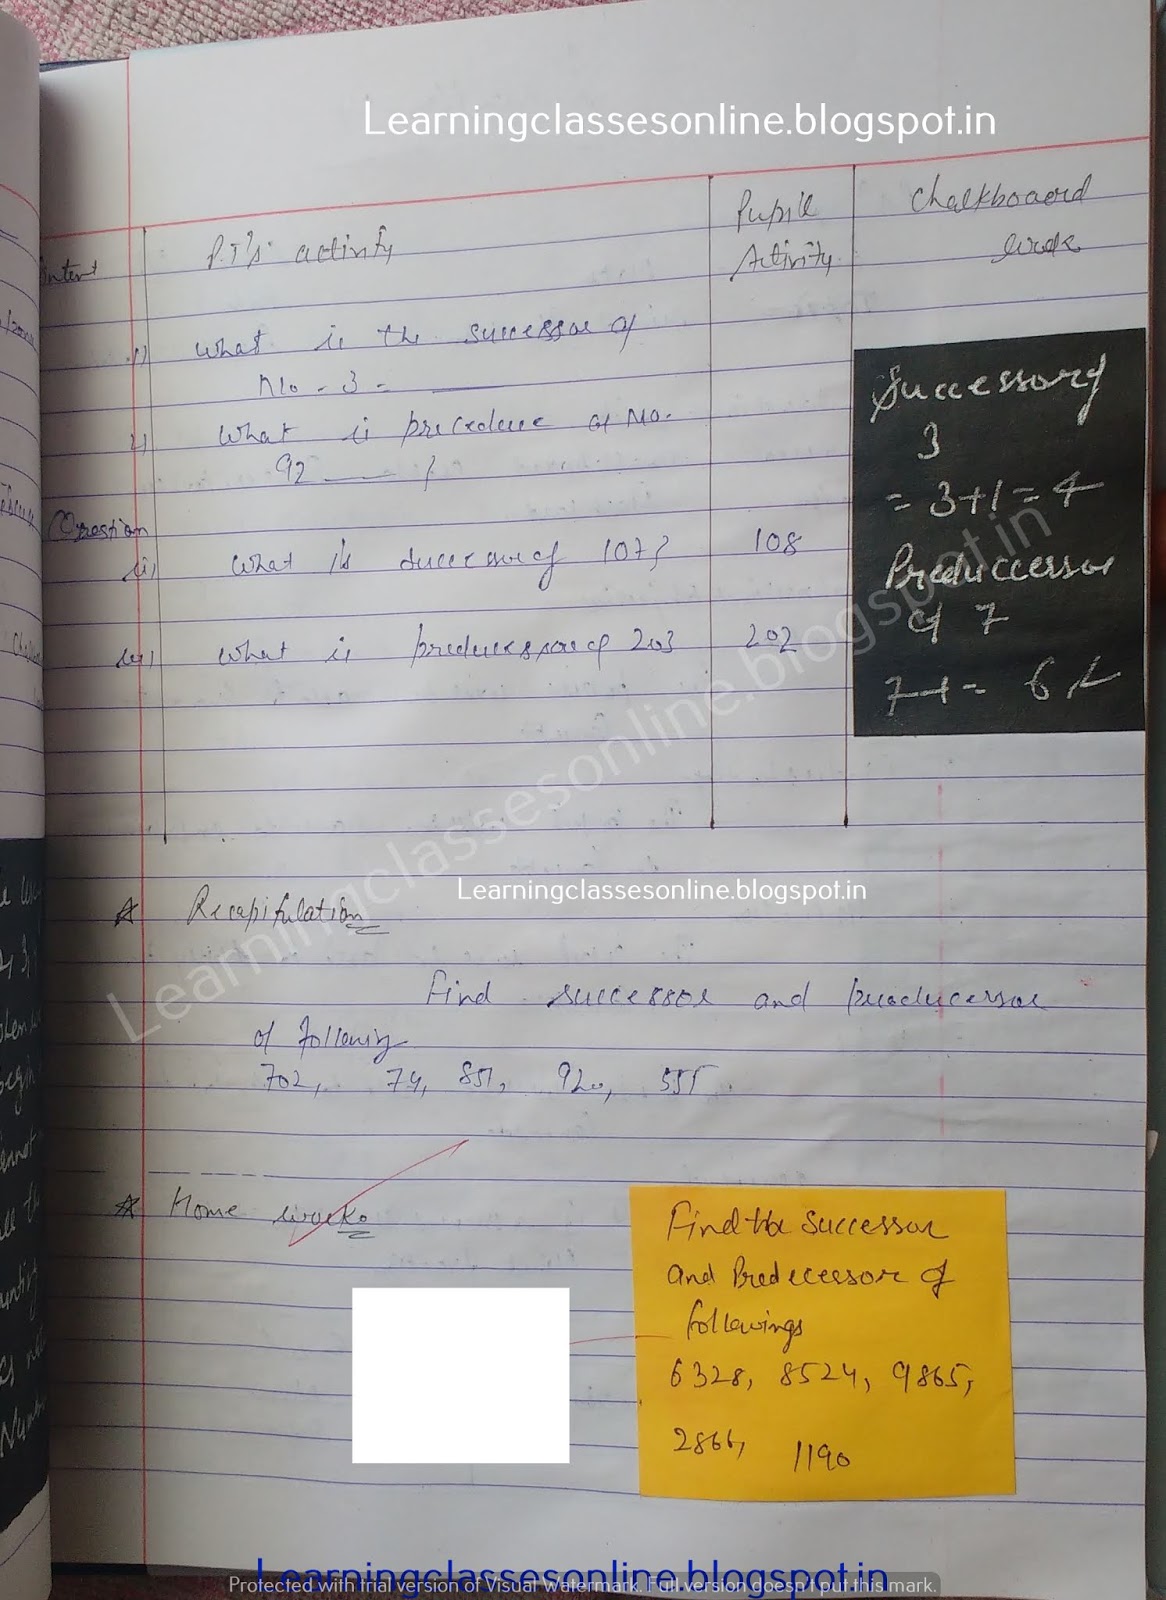 Learningclassesonline.blogspot.in
P.T's activity
Pupil
Activity
Chalkboaord
work
i) What is the successor of
No - 3 =
What is precedence of No.
92
Question
iii) What is successor of 107?
108
iv) What is preduecessor of 203
202
Successor of
3
= 3+1 = 4
Preduccessor
of 7
7-1 = 6
Learningclassesonline.blogspot.in
Learningclassesonline.blogspot.in
Recapitulation
Find successor and preducessor
of following
702, 74, 851, 920, 555.
Home work
Find the successor
and Predecessor of
followings
6328, 8524, 9865,
2866, 1190
Learningclassesonline.blogspot.in
Protected with trial version of Visual Watermark. Full version doesn't put this mark.